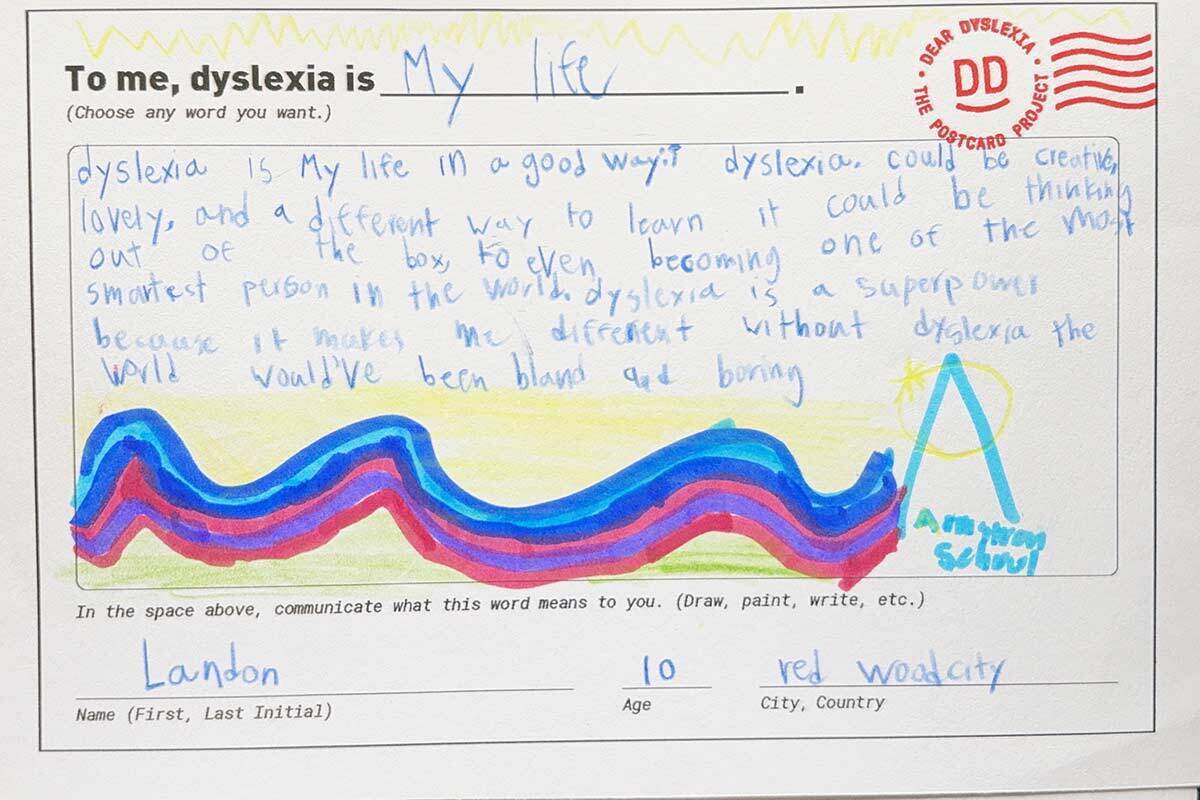 To me, dyslexia is My life.
(Choose any word you want.)
DEAR DYSLEXIA • THE POSTCARD PROJECT •
DD
dyslexia is My life in a good way! dyslexia. could be creative,
lovely, and a different way to learn it could be thinking
out of the box, to even becoming one of the most
smartest person in the world. dyslexia is a superpower
because it makes me different without dyslexia the
world would've been bland and boring
A
Armstrong
School
In the space above, communicate what this word means to you. (Draw, paint, write, etc.)
Landon 10 red woodcity
Name (First, Last Initial) Age City, Country